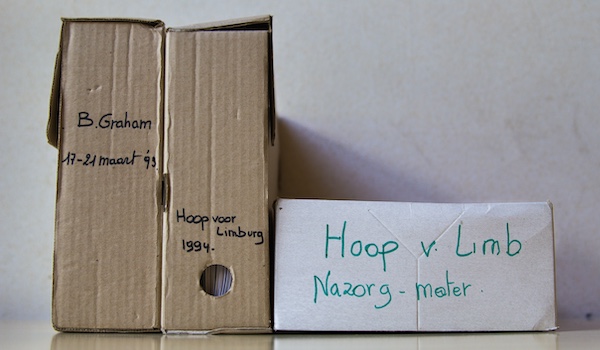 B. Graham
17-21 maart '93
Hoop voor
Limburg
1994.
Hoop v. Limb
Nazorg - mater.